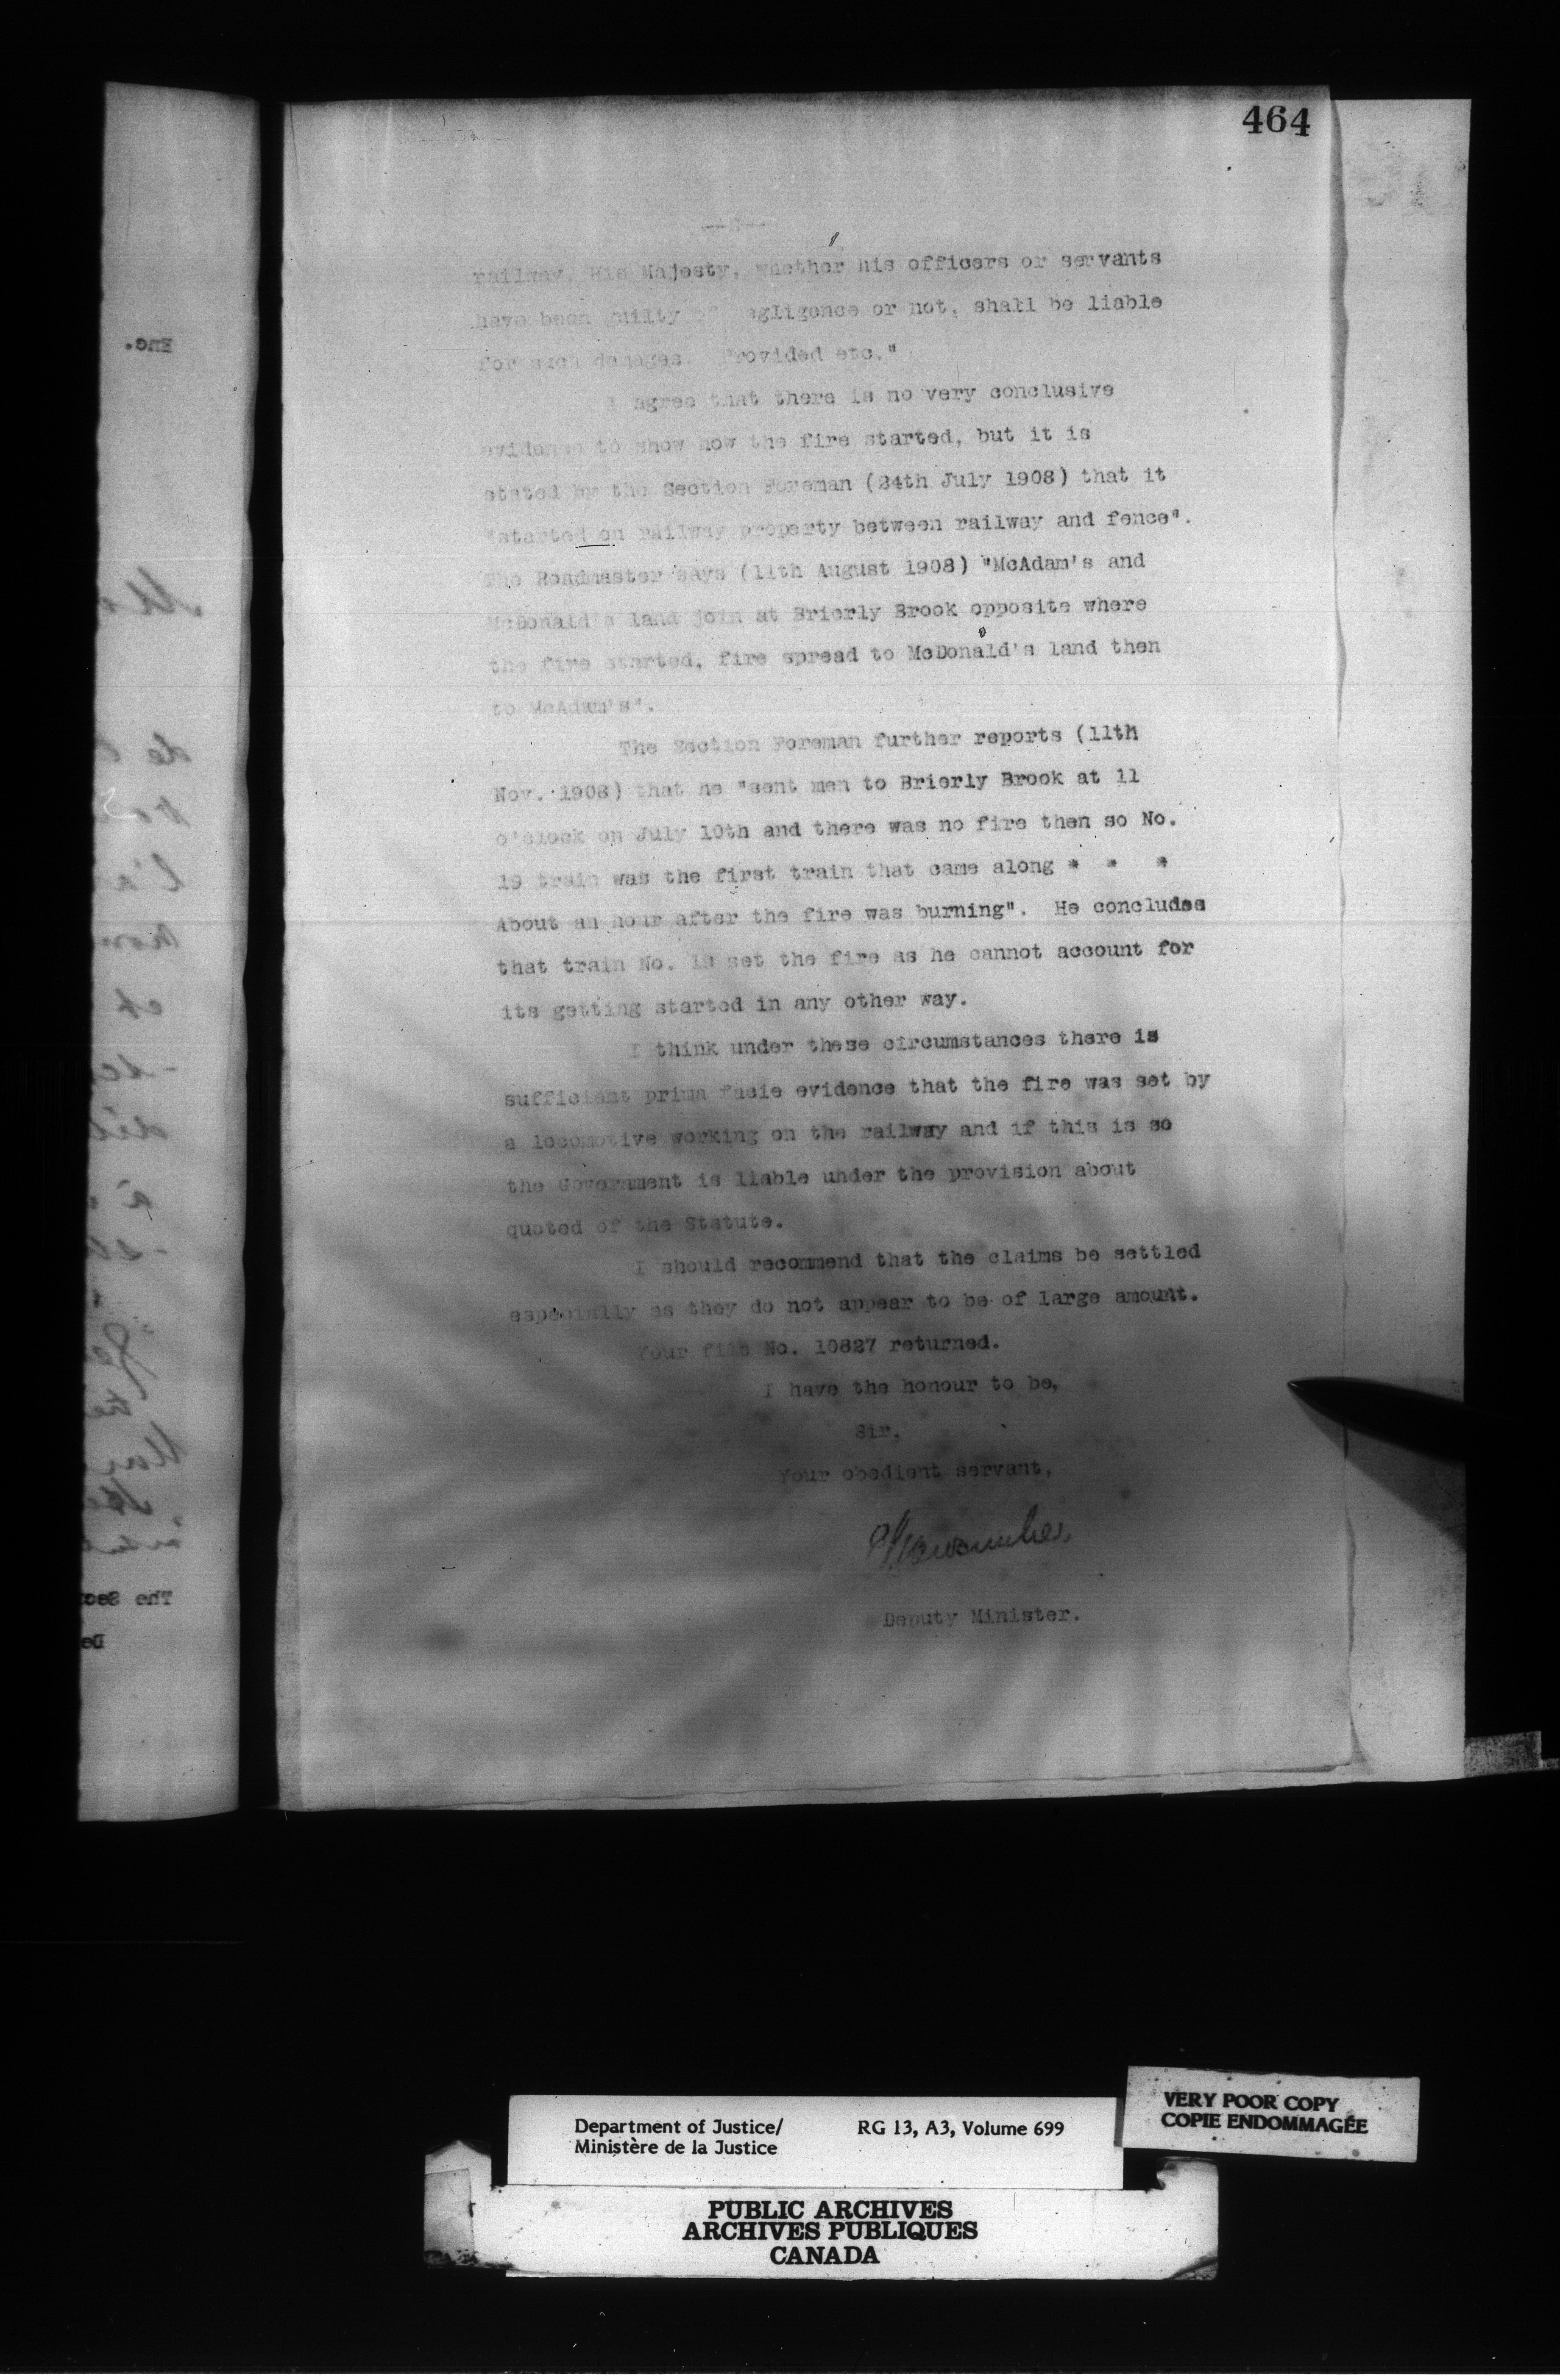 464
railway, His Majesty, whether his officers or servants
have been guilty of negligence or not, shall be liable
for such damages. Provided etc."
I agree that there is no very conclusive
evidence to show how the fire started, but it is
stated by the Section Foreman (24th July 1908) that it
"started on railway property between railway and fence".
The Roadmaster says (11th August 1908) "McAdam's and
McDonald's land join at Brierly Brook opposite where
the fire started, fire spread to McDonald's land then
to McAdam's".
The Section Foreman further reports (11th
Nov. 1908) that he "sent men to Brierly Brook at 11
o'clock on July 10th and there was no fire then so No.
19 train was the first train that came along * * *
About an hour after the fire was burning". He concludes
that train No. 19 set the fire as he cannot account for
its getting started in any other way.
I think under these circumstances there is
sufficient prima facie evidence that the fire was set by
a locomotive working on the railway and if this is so
the Government is liable under the provision about
quoted of the Statute.
I should recommend that the claims be settled
especially as they do not appear to be of large amount.
Your file No. 10827 returned.
I have the honour to be,
Sir,
Your obedient servant,
Deputy Minister.
Enc.
The Sec
De
Department of Justice/
Ministère de la Justice
RG 13, A3, Volume 699
VERY POOR COPY
COPIE ENDOMMAGÉE
PUBLIC ARCHIVES
ARCHIVES PUBLIQUES
CANADA